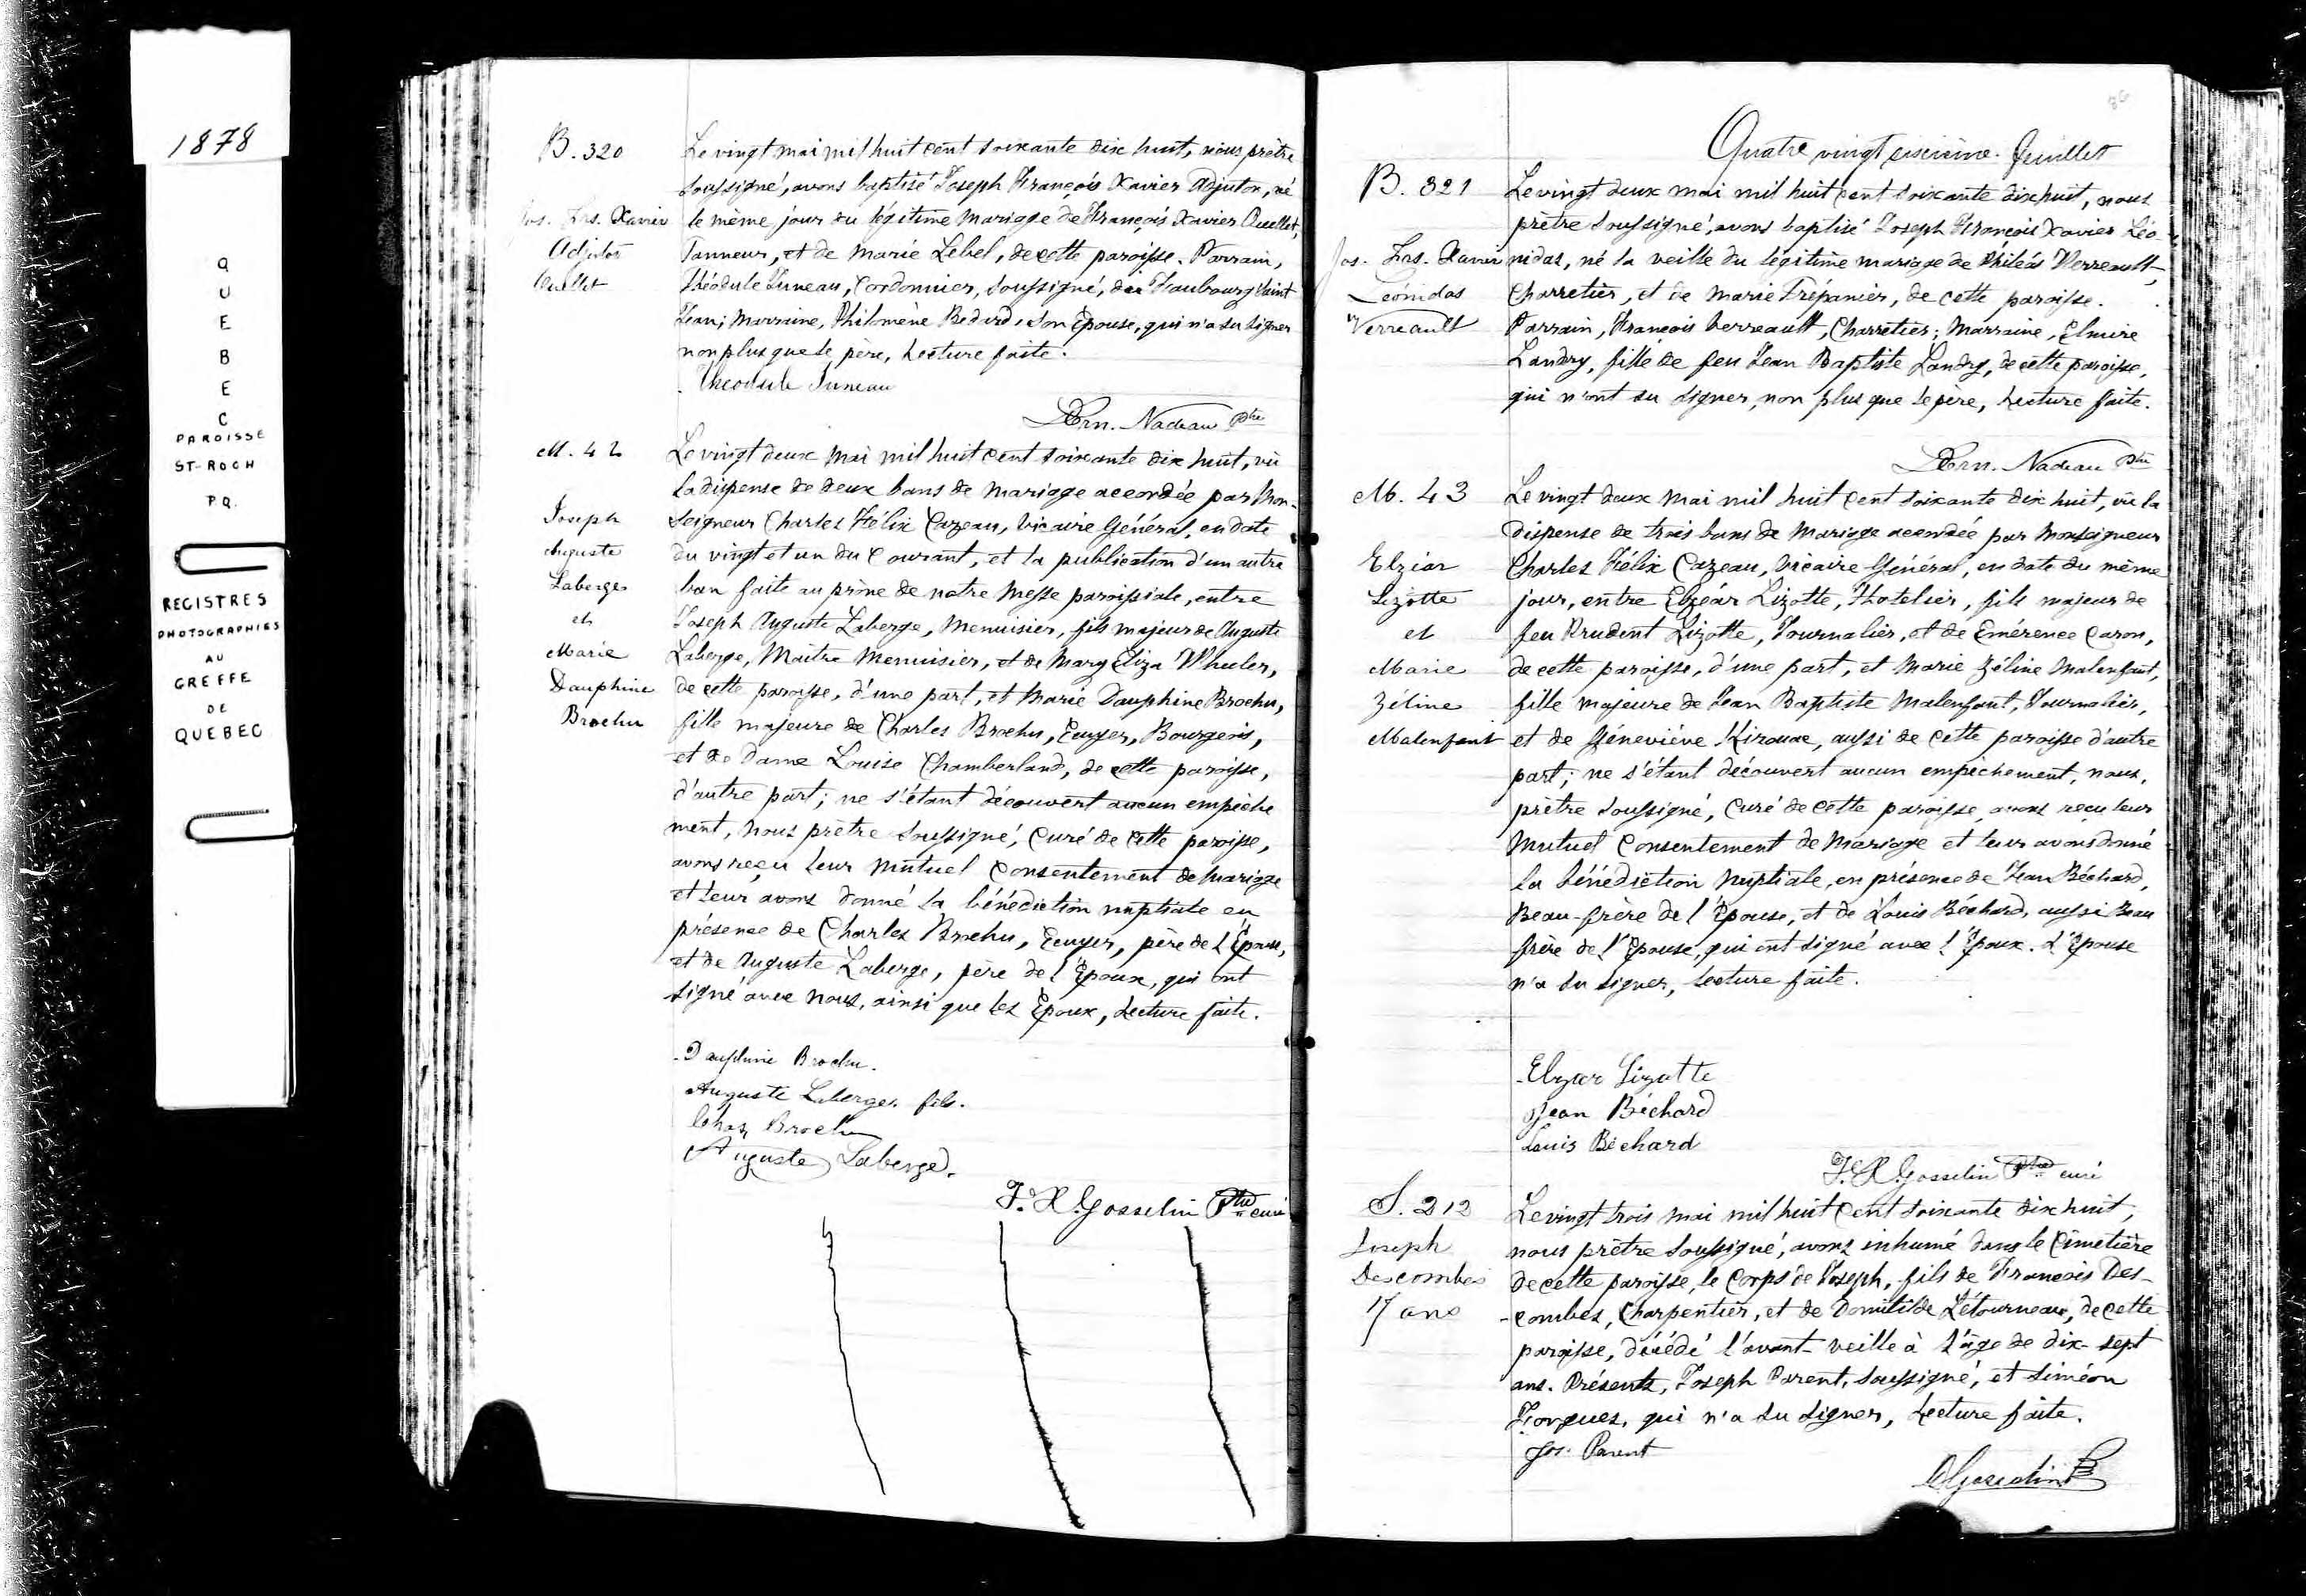 1878
Q
U
E
B
E
C
PAROISSE
ST-ROCH
P.Q.
REGISTRES
PHOTOGRAPHIES
AU
GREFFE
DE
QUEBEC
B. 320
Jos. Frs. Xavier
Adjutor
Ouellet
Le vingt mai mil huit cent soixante dix huit, nous prêtre
soussigné, avons baptisé Joseph François Xavier Adjutor, né
le même jour du légitime mariage de François Xavier Ouellet,
Tanneur, et de Marie Lebel, de cette paroisse. Parrain,
Théodule Juneau, Cordonnier, soussigné, du Faubourg Saint
Jean; Marraine, Philomène Bedard, son Épouse, qui n'a su signer
non plus que le père, lecture faite.
Theodule Juneau
Nadeau Ptre
M. 42
Joseph
Auguste
Laberge
et
Marie
Dauphine
Brochu
Le vingt deux Mai mil huit cent soixante dix huit, vû
la dispense de deux bans de mariage accordée par Mon-
seigneur Charles Félix Cazeau, Vicaire Général, en date
du vingt et un du Courant, et la publication d'un autre
ban faite au prône de notre Messe paroissiale, entre
Joseph Auguste Laberge, Menuisier, fils majeur de Auguste
Laberge, Maître Menuisier, et de Mary Eliza Wheeler,
de cette paroisse, d'une part, et Marie Dauphine Brochu,
fille majeure de Charles Brochu, Ecuyer, Bourgeois,
et de Dame Louise Chamberland, de cette paroisse,
d'autre part; ne s'étant découvert aucun empêche
ment, nous prêtre soussigné, Curé de cette paroisse,
avons reçu leur mutuel Consentement de mariage
et leur avons donné la bénédiction nuptiale en
présence de Charles Brochu, Ecuyer, père de l'Épouse,
et de Auguste Laberge, père de l'Époux, qui ont
signé avec nous, ainsi que les Époux, lecture faite.
Dauphine Brochu.
Auguste Laberge fils.
Chas Brochu
Auguste Laberge.
F. X. Gosselin Ptre curé
86
Quatre vingt sixième feuillet
B. 321
Jos. Frs. Xavier
Léonidas
Verreault
Le vingt deux mai mil huit cent soixante dix huit, nous
prêtre soussigné, avons baptisé Joseph François Xavier Léo-
nidas, né la veille du légitime mariage de Philéas Verreault,
Charretier, et de Marie Trépanier, de cette paroisse.
Parrain, François Verreault, Charretier; Marraine, Elmire
Landry, fille de feu Jean Baptiste Landry, de cette paroisse,
qui n'ont su signer, non plus que le père, lecture faite.
Nadeau Ptre
M. 43
Elzéar
Lizotte
et
Marie
Zéline
Malenfant
Le vingt deux mai mil huit cent soixante dix huit, vû la
dispense de trois bans de Mariage accordée par Monseigneur
Charles Félix Cazeau, Vicaire Général, en date du même
jour, entre Elzéar Lizotte, Hotelier, fils majeur de
feu Prudent Lizotte, Journalier, et de Emérence Caron,
de cette paroisse, d'une part, et Marie Zéline Malenfant,
fille majeure de Jean Baptiste Malenfant, Journalier,
et de Géneviève Kirouac, aussi de cette paroisse d'autre
part; ne s'étant découvert aucun empêchement, nous,
prêtre soussigné, Curé de cette paroisse, avons reçu leur
Mutuel Consentement de Mariage et leur avons donné
la bénédiction nuptiale, en présence de Jean Béchard,
Beau-frère de l'Épouse, et de Louis Béchard, aussi Beau
frère de l'Épouse, qui ont signé avec l'Époux. L'Épouse
n'a su signer, lecture faite.
Elzear Lizotte
Jean Béchard
Louis Béchard
F. X. Gosselin Ptre curé
S. 212
Joseph
Descombes
17 ans
Le vingt trois mai mil huit cent soixante dix huit,
nous prêtre soussigné, avons inhumé dans le Cimetière
de cette paroisse, le Corps de Joseph, fils de François Des-
combes, Charpentier, et de Domitilde Létourneau, de cette
paroisse, décédé l'avant-veille à l'âge de dix-sept
ans. Présents, Joseph Parent, soussigné, et Siméon
Forgues, qui n'a su signer, lecture faite.
Jos. Parent
Gosselin Ptre